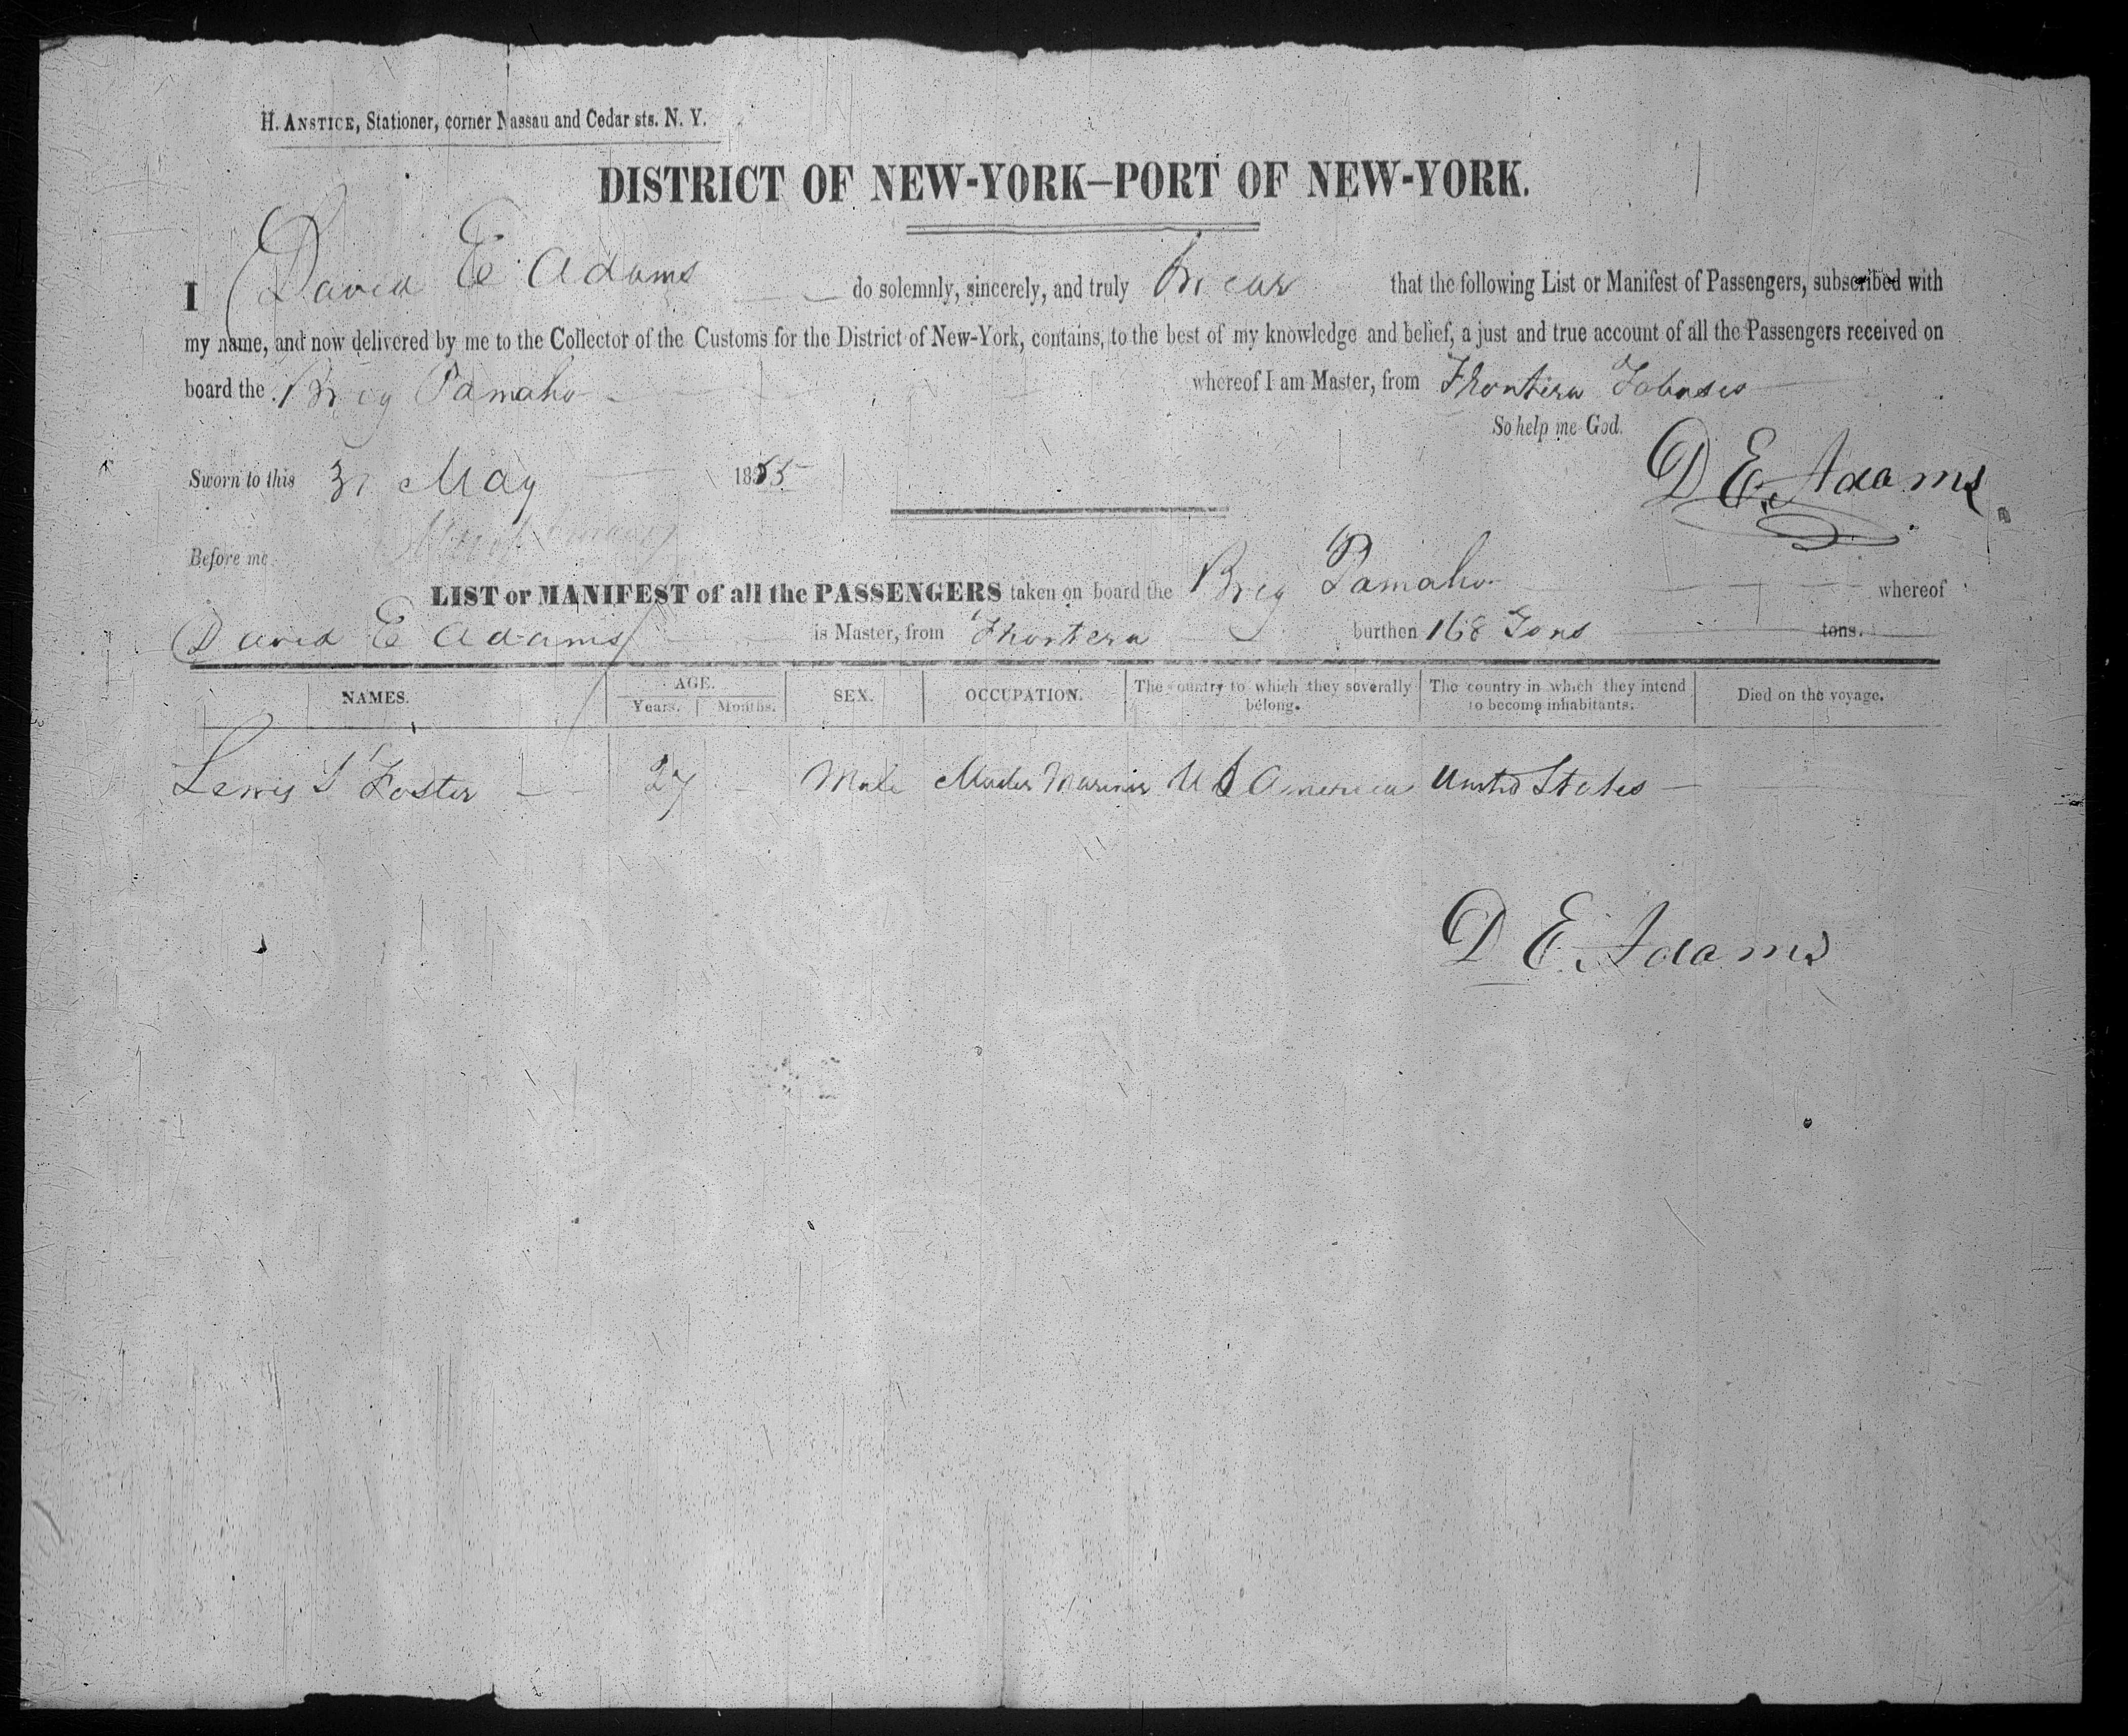 H. ANSTICE, Stationer, corner Nassau and Cedar sts. N. Y.
DISTRICT OF NEW-YORK–PORT OF NEW-YORK.
I David E Adams do solemnly, sincerely, and truly swear that the following List or Manifest of Passengers, subscribed with
my name, and now delivered by me to the Collector of the Customs for the District of New-York, contains, to the best of my knowledge and belief, a just and true account of all the Passengers received on
board the Brig Pamaho whereof I am Master, from Frontera
So help me God.
Sworn to this 31 May 1855
D E Adams
Before me
LIST or MANIFEST of all the PASSENGERS taken on board the Brig Pamaho whereof
David E Adams is Master, from Frontera burthen 168 Tons tons.
NAMES. AGE. SEX. OCCUPATION. The country to which they severally belong. The country in which they intend to become inhabitants. Died on the voyage.
Years. Months.
Lewis S Foster 27 Male Master Mariner U S America United States
D E Adams